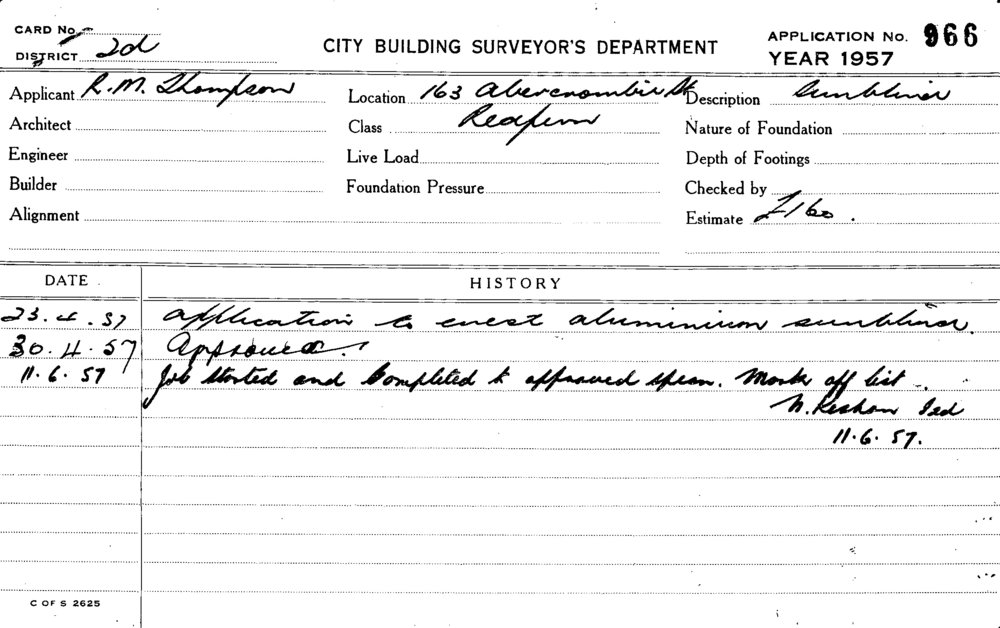 CARD No.
DISTRICT 2d
CITY BUILDING SURVEYOR'S DEPARTMENT
APPLICATION No. 966
YEAR 1957
Applicant R. M. Thompson
Location 163 Abercrombie St
Description Sunblind
Architect
Class Redfern
Nature of Foundation
Engineer
Live Load
Depth of Footings
Builder
Foundation Pressure
Checked by
Alignment
Estimate £160.
DATE
HISTORY
23.4.57 Application to erect aluminium sunblind.
30.4.57 Approved.
11.6.57 Job started and Completed to approved specn. Mark off list.
11.6.57.
C OF S 2625